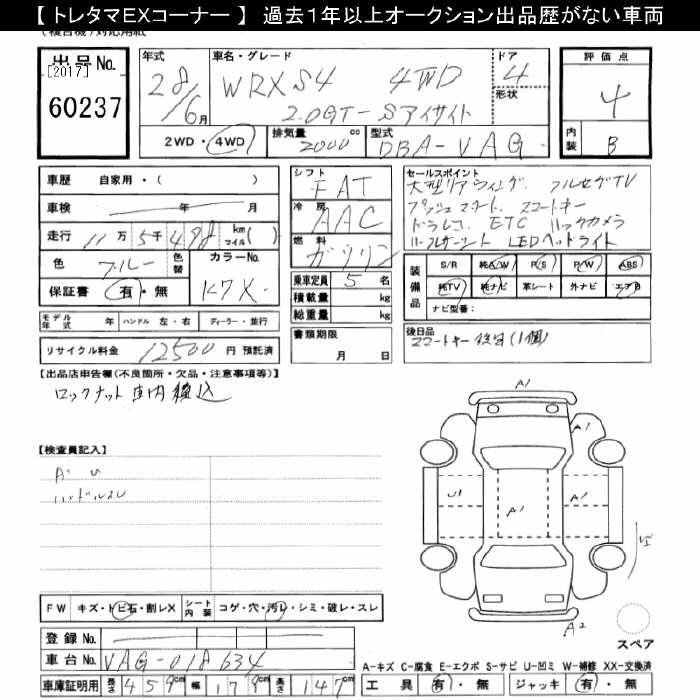 【トレタマEXコーナー】 過去１年以上オークション出品歴がない車両
出品No.
[2017]
60237
年式
28/6月
車名・グレード
WRX S4 4WD
2.0GT-Sアイサイト
ドア
4
形状
評価点
4
内装
B
2WD・4WD
排気量
2000 cc
型式
DBA-VAG
車歴 自家用・( )
車検 年 月
走行 11万 5千 498 km マイル( )
色 ブルー 色替
カラーNo.
K7X
保証書 有・無
シフト
FAT
冷房
AAC
燃料
ガソリン
乗車定員 5 名
積載量 kg
総重量 kg
セールスポイント
大型リアウィング. フルセグTV
プッシュスタート. スマートキー
ドラレコ. ETC バックカメラ
ハーフレザーシート LEDヘッドライト
装備品
S/R 純A/W P/S P/W ABS
純TV 純ナビ 革シート 外ナビ エアB
ナビ型番:
モデル年式 年 ハンドル 左・右 ディーラー・並行
リサイクル料金 12500 円 預託済
書類期限
月 日
後日品
スマートキー後日(1個)
【出品店申告欄(不良箇所・欠品・注意事項等)】
ロックナット車内積込
【検査員記入】
A' U
ハンドルスレ
A1
A1
U1
A1
A1
A2
スペア
FW キズ・トビ石・割レX シート内装 コゲ・穴・汚レ・シミ・破レ・スレ
登録No.
車台No. VAG-018634
車庫証明用 長さ 459cm 幅 179cm 高さ 147cm
A-キズ C-腐食 E-エクボ S-サビ U-凹ミ W-補修 XX-交換済
工具 有・無 ジャッキ 有・無